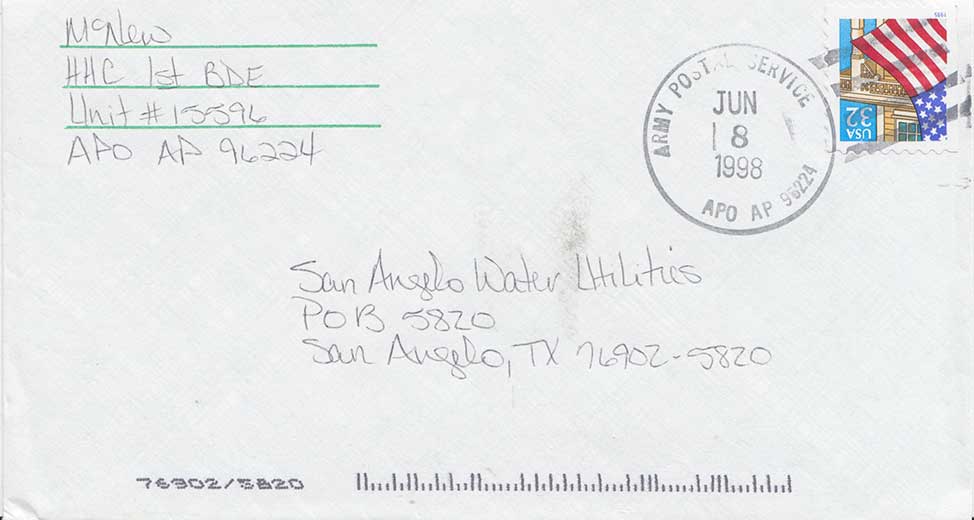 McNew
HHC 1st BDE
Unit # 15596
APO AP 96224
ARMY POSTAL SERVICE
JUN
18
1998
APO AP 96224
USA 32
San Angelo Water Utilities
POB 5820
San Angelo, TX 76902-5820
76902/5820